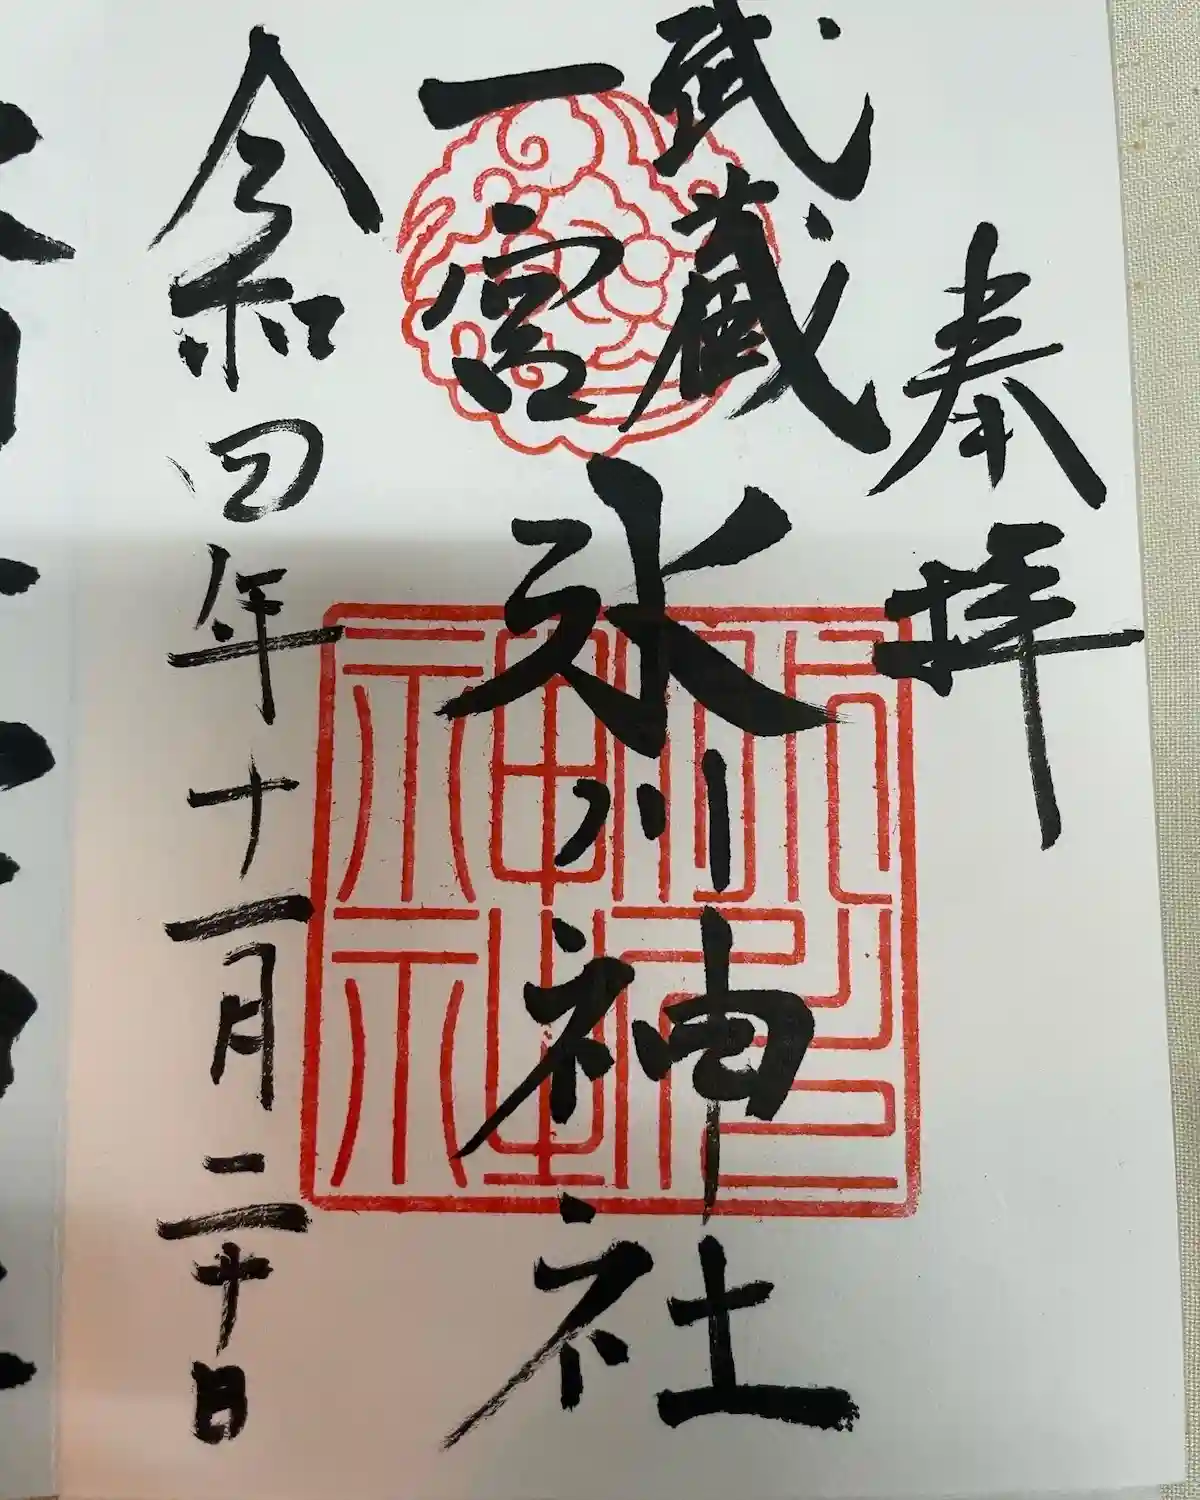 奉拝
武蔵
一宮
氷川神社
令和四年十一月二十日